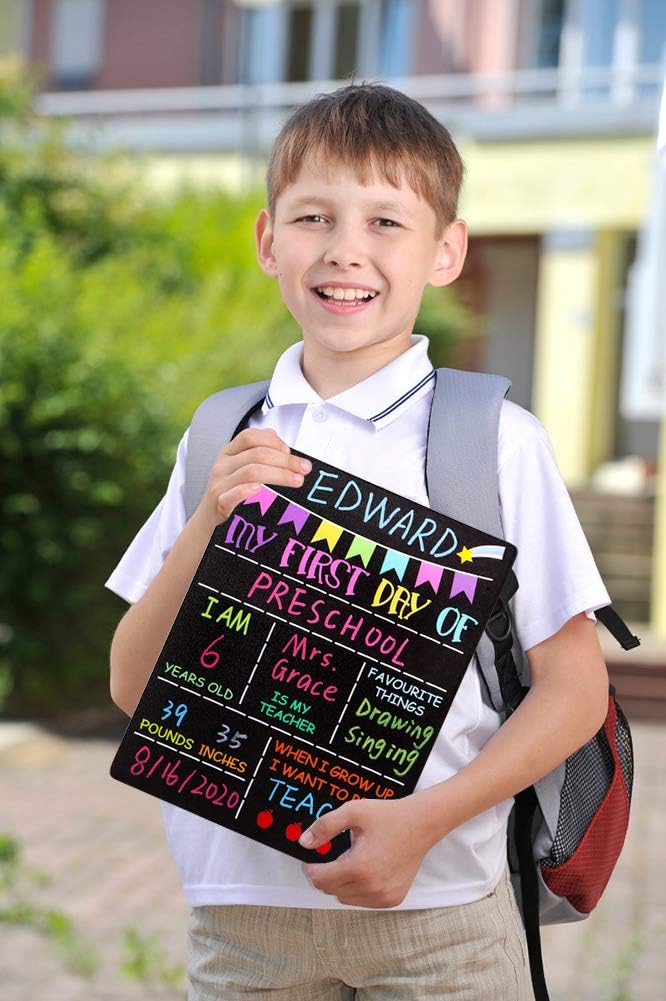 EDWARD
MY FIRST DAY OF
PRESCHOOL
I AM
6
YEARS OLD
Mrs.
Grace
IS MY
TEACHER
FAVOURITE
THINGS
Drawing
Singing
39 35
POUNDS INCHES
8/16/2020
WHEN I GROW UP
I WANT TO
TEAC